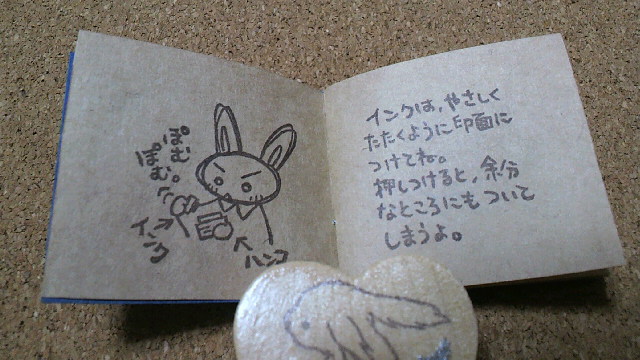 ぽむ
ぽむ。
インク
ハンコ
インクは、やさしく
たたくように印面に
つけてね。
押しつけると、余分
なところにもついて
しまうよ。